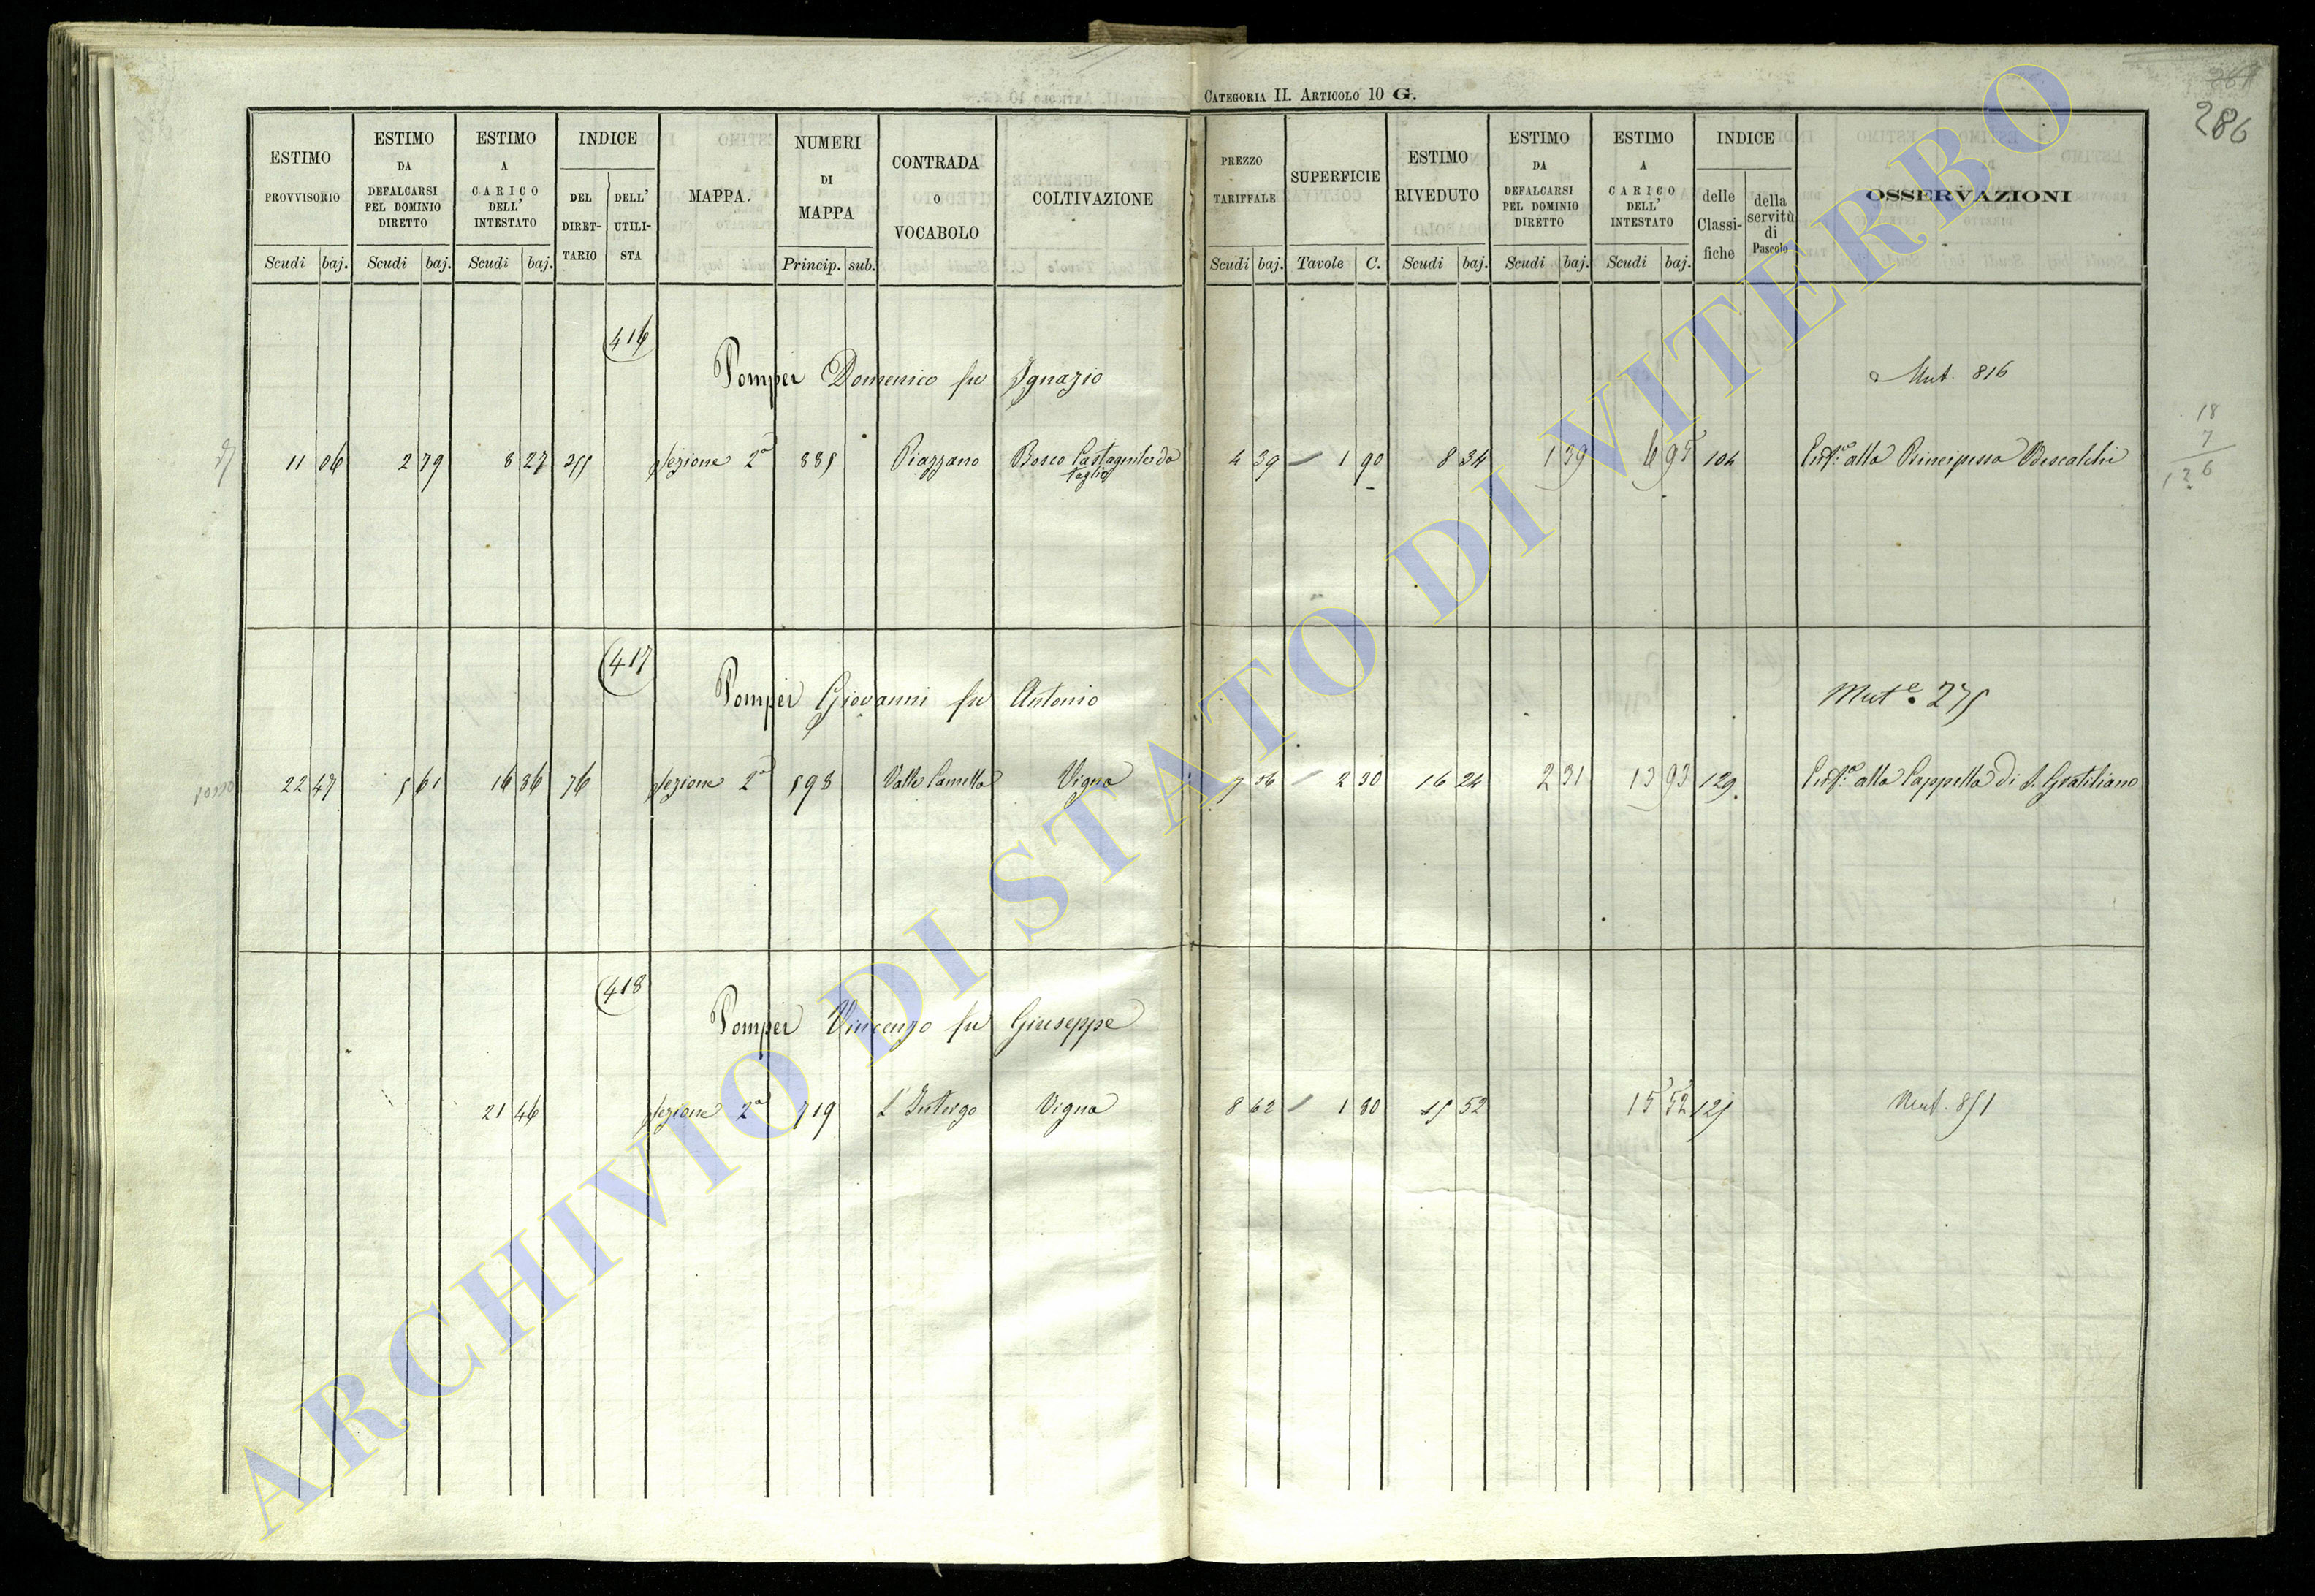 CATEGORIA II. ARTICOLO 10 G.
286
ESTIMO PROVVISORIO
Scudi baj.
ESTIMO DA DEFALCARSI PEL DOMINIO DIRETTO
Scudi baj.
ESTIMO A CARICO DELL' INTESTATO
Scudi baj.
INDICE
DEL DIRETTARIO
DELL' UTILISTA
MAPPA.
NUMERI DI MAPPA
Princip. sub.
CONTRADA O VOCABOLO
COLTIVAZIONE
PREZZO TARIFFALE
Scudi baj.
SUPERFICIE
Tavole C.
ESTIMO RIVEDUTO
Scudi baj.
ESTIMO DA DEFALCARSI PEL DOMINIO DIRETTO
Scudi baj.
ESTIMO A CARICO DELL' INTESTATO
Scudi baj.
INDICE
delle Classifiche
della servitù di Pascolo
OSSERVAZIONI
416
Pompei Domenico fu Ignazio
Mut. 816
11 06 2 79 8 27 255 Sezione 2a 885 Piazzano Bosco Castagnile da taglio 4 39 1 90 8 34 1 39 6 95 104 alla Principessa Odescalchi
18
7
126
417
Pompei Giovanni fu Antonio
Mute. 275
22 47 5 61 16 86 76 Sezione 2a 598 Valle Camella Vigna 7 06 2 30 16 24 2 31 13 93 129 alla Cappella di S. Gratiliano
418
Pompei Vincenzo fu Giuseppe
21 46 Sezione 2a 719 L'Intergo Vigna 8 62 1 80 15 52 15 52 125 Mut. 851
ARCHIVIO DI STATO DI VITERBO